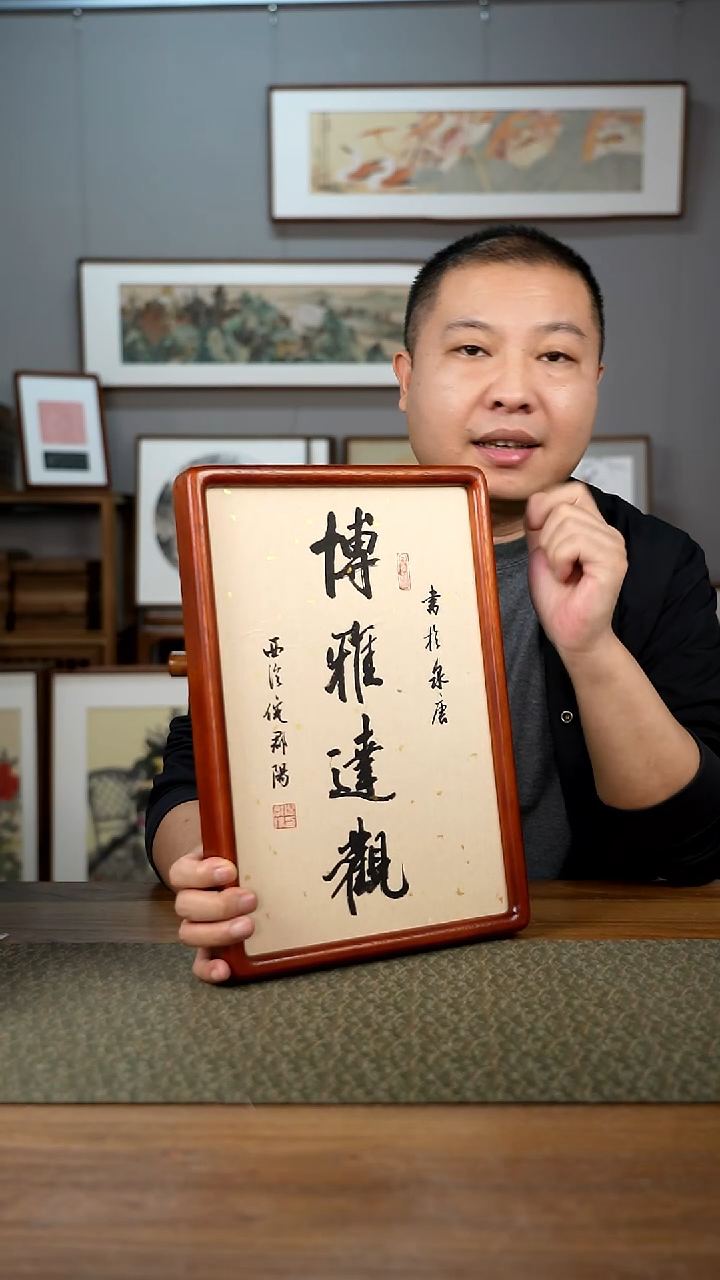 書於泉唐
博雅達觀
西泠倪郡陽